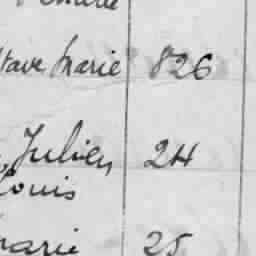 tave Marie 826
Julien 24
Louis
Marie 25